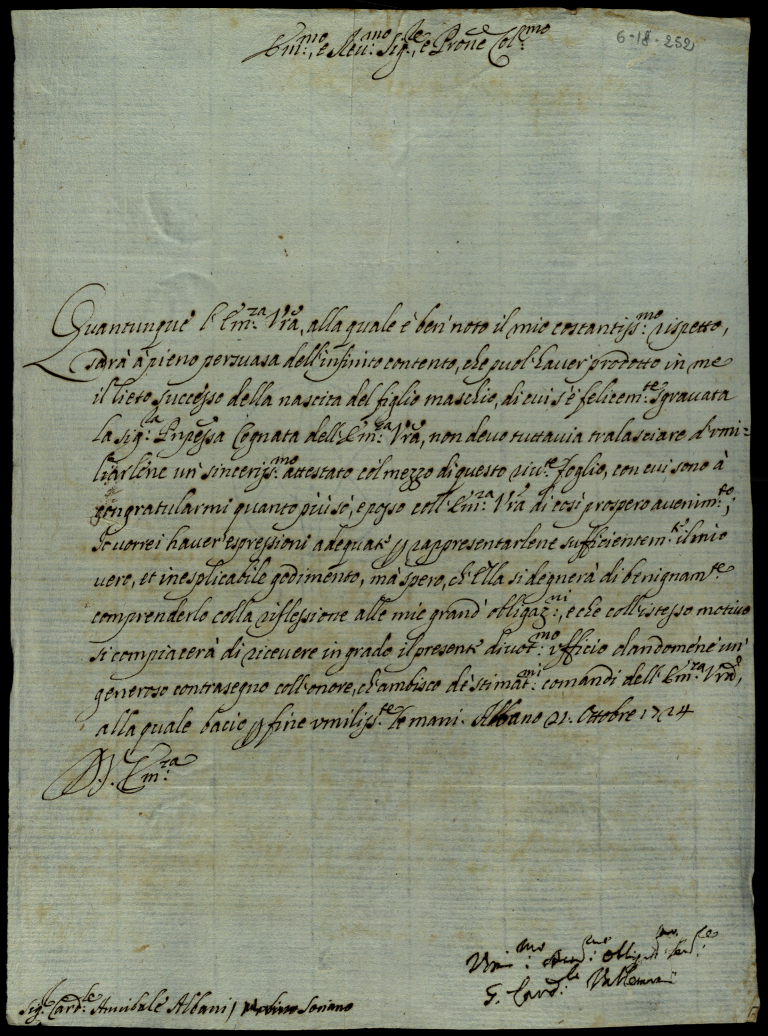 6-18-252
Em.mo, e Reu.mo Sig.re, e Prone Col.mo
Quantunque l'Em.za Vra, alla quale è ben noto il mio costantiss.mo rispetto,
sarà à pieno persuasa dell'infinito contento, che puol'hauer prodotto in me
il lieto successo della nascita del figlio maschio, di cui s'è felicem.te sgrauata
la Sig.ra Pnpessa Cognata dell'Em.za Vra, non deuo tuttauia tralasciare d'vmi-
liarlene un' sinceriss.mo attestato col mezzo di questo riu.te foglio, con cui sono à
congratularmi quanto più sò, e posso coll'Em.za Vra di così prospero auenim.to;
Io vorrei hauer' espressioni adequate p rappresentarlene sufficientem.te il mio
vero, et inesplicabile godimento, mà spero, ch'Ella si degnerà di benignam.te
comprenderlo colla riflessione alle mie grand' obligaz.ni, e che coll'istesso motiuo
si compiacerà di riceuere in grado il presente diuot.mo vfficio dandomene un'
generoso contrasegno coll'onore, ch'ambisco de' stimat.mi comandi dell'Em.za Vra,
alla quale bacio p fine vmiliss.te le mani. Albano 21. Ottobre 1724
D. V. Em.za
Vmi.mo Diu.mo Obligat.mo Seru.re
G. Card.le
Sig.r Card.le Annibale Albani / Soriano